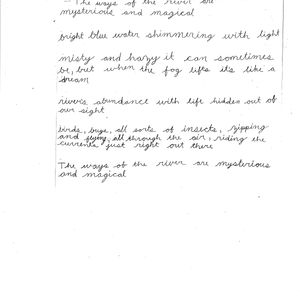 - The ways of the river are
mysterious and magical
bright blue water shimmering with light
misty and hazy it can sometimes
be, but when the fog lifts its like a
dream
rivers abundance with life hidden out of
our sight
birds, bugs, all sorts of insects, zipping
and flying all through the air, riding the
currents just right out there
The ways of the river are mysterious
and magical